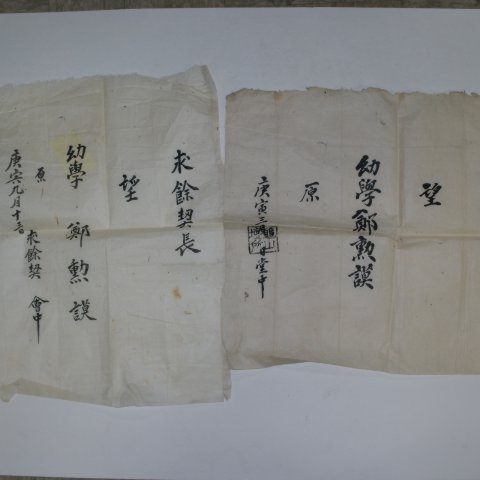 望
幼學鄭勲謨
原
庚寅三月 日堂中
求餘契長
望
幼學 鄭勲謨
原
庚寅九月十
求餘契 會中